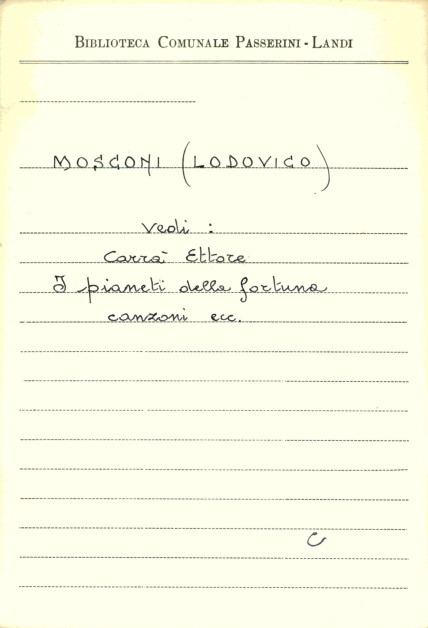 BIBLIOTECA COMUNALE PASSERINI - LANDI
MOSCONI (LODOVICO)
Vedi :
Carrà Ettore
I pianeti della fortuna
canzoni ecc.
C